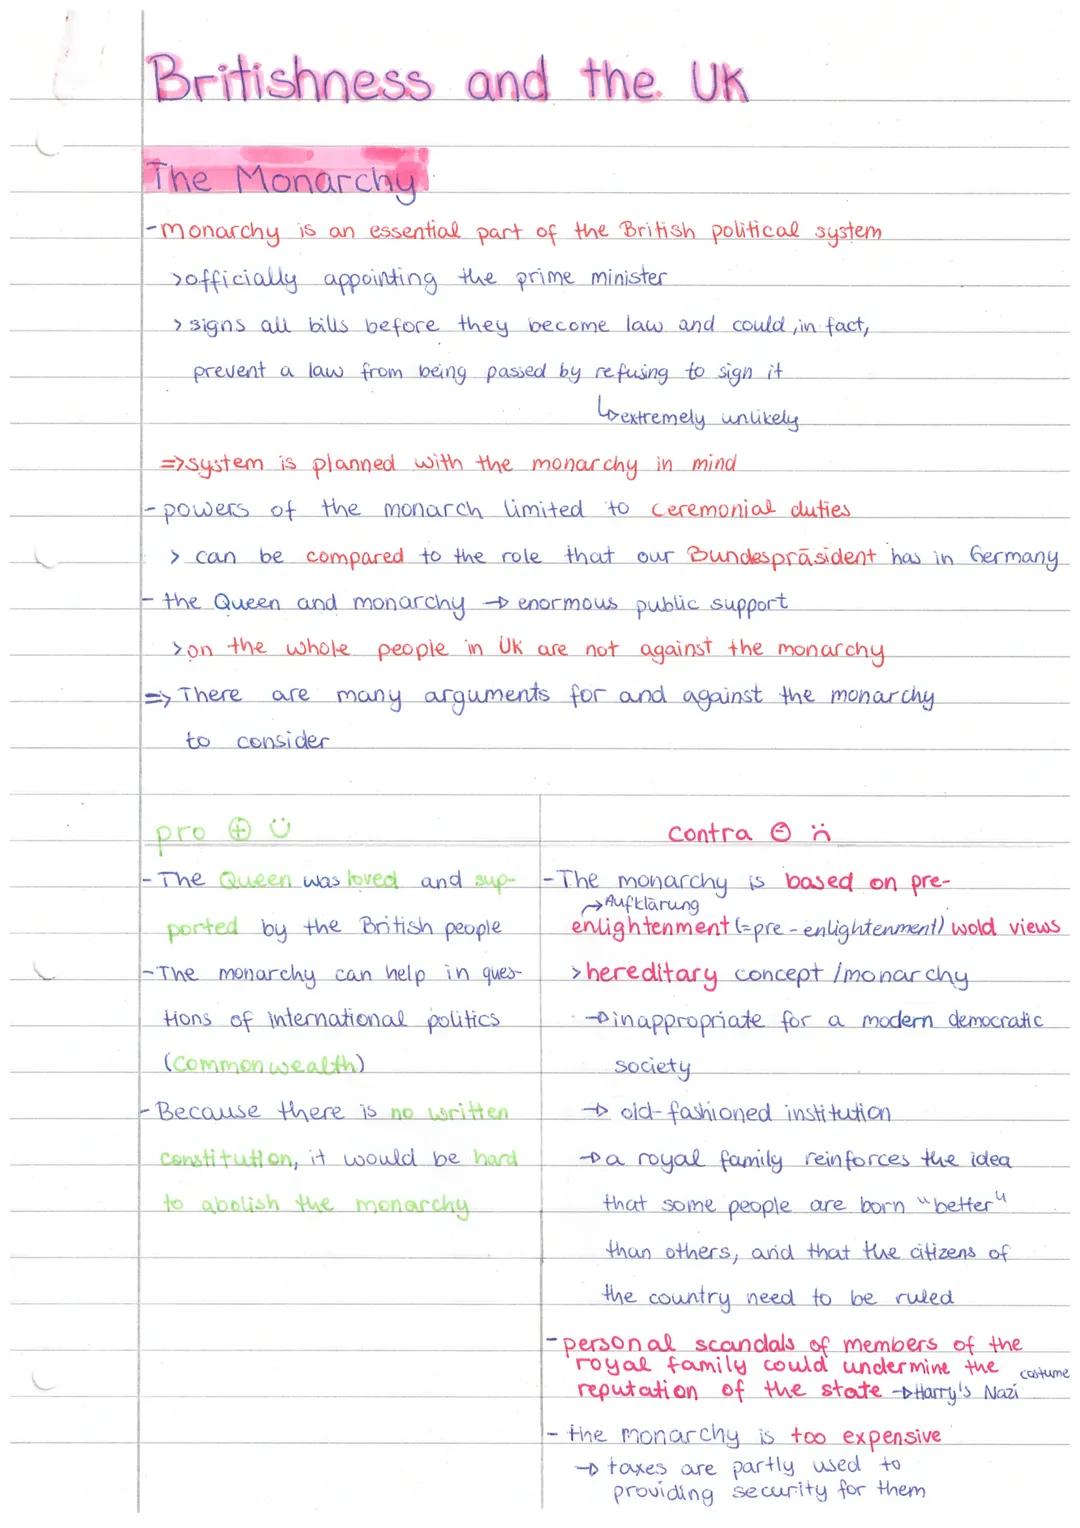 Britishness and the UK
The Monarchy
-monarchy is an essential part of the British political system
>officially appointing the prime minister
> signs all bills before they become law and could, in fact,
prevent a law from being passed by refusing to sign it
↳extremely unlikely
=>system is planned with the monarchy in mind
- powers of the monarch limited to ceremonial duties
> can be compared to the role that our Bundespräsident has in Germany
- the Queen and monarchy → enormous public support
>on the whole people in UK are not against the monarchy
=> There are many arguments for and against the monarchy
to consider
pro ⊕ ☺
- The Queen was loved and sup-
ported by the British people
-The monarchy can help in ques-
tions of international politics
(Commonwealth)
- Because there is no written
constitution, it would be hard
to abolish the monarchy
contra ⊖ ☹
-The monarchy is based on pre-
→Aufklärung
enlightenment (=pre-enlightenment) wold views
>hereditary concept /monarchy
→inappropriate for a modern democratic
society
→ old-fashioned institution
→a royal family reinforces the idea
that some people are born "better"
than others, and that the citizens of
the country need to be ruled
-personal scandals of members of the
royal family could undermine the
reputation of the state →Harry's Nazi costume
- the monarchy is too expensive
→ taxes are partly used to
providing security for them